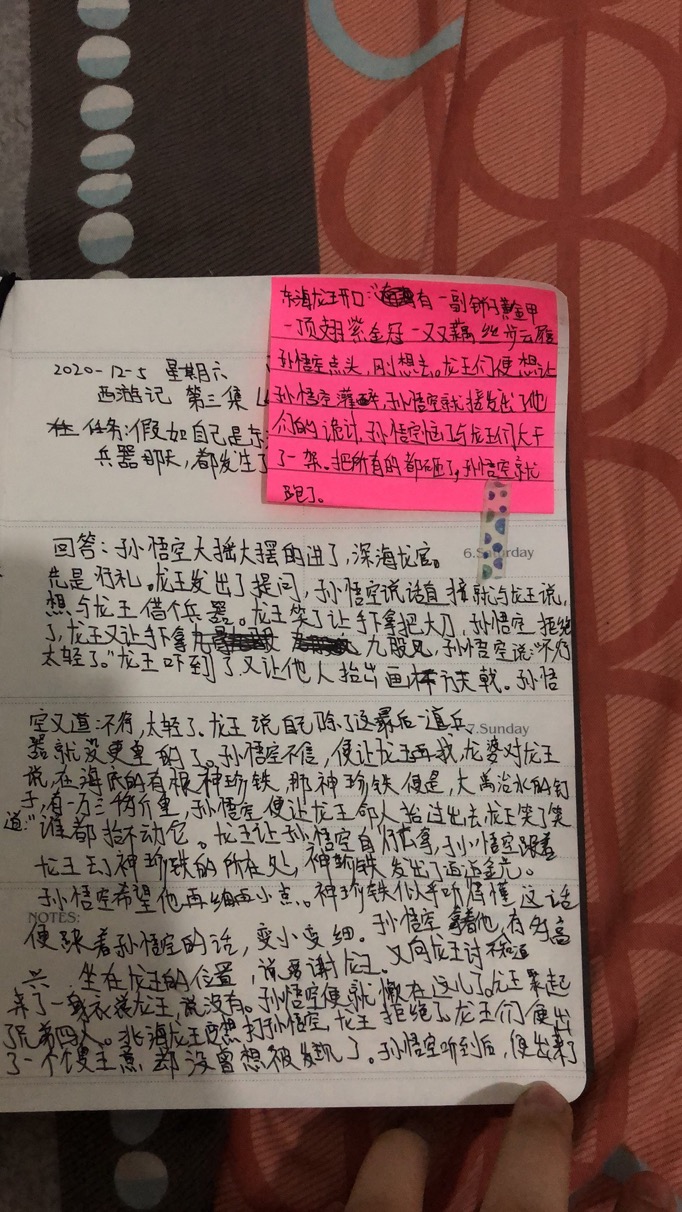 东海龙王开口:"有一副锁子黄金甲
一顶翅紫金冠一双藕丝步云履
孙悟空点头,刚想走。龙王们便想让
孙悟空灌醉,孙悟空就揭发出了他
们的诡计,孙悟空便与龙王们大干
了一架、把所有的都砸了,孙悟空就
跑了。
2020-12-5 星期六
西游记 第三集
任务:假如自己是东
兵器那天,都发生了
回答:孙悟空大摇大摆的进了,深海龙宫。
6.Saturday
先是行礼。龙王发出了提问,孙悟空说话直接就与龙王说,
想与龙王借个兵器。龙王笑了让手下拿把大刀,孙悟空拒绝
了,龙王又让手下拿九股叉,孙悟空说:"不行
太轻了。"龙王吓到了又让他人抬出画杆方天戟。孙悟
空又道:不行,太轻了。龙王说自己除了这最后一道兵
7.Sunday
器就没更重的了。孙悟空不信,便让龙王再找,龙婆对龙王
说,在海底的有根神珍铁,那神珍铁便是,大禹治水的钉
子,有一万三千斤重,孙悟空便让龙王命人抬过出去,龙王笑了笑
道:"谁都抬不动它。龙王让孙悟空自行去拿,孙悟空跟着
龙王去了神珍铁的所在处,神珍铁发出了道道金光。
孙悟空希望他再细再小点。神珍铁似乎听得懂这话
NOTES:
便跟着孙悟空的话,变小变细。孙悟空拿着他,有多高
兴 坐在龙王的位置,说多谢龙王。又向龙王讨不知道
弄了一身衣裳龙王,说没有。孙悟空便就懒在这儿了龙王聚起
了兄弟四人。北海龙王想打孙悟空,龙王拒绝了龙王们便出
了一个馊主意却没曾想被发现了。孙悟空听到后,便出来了